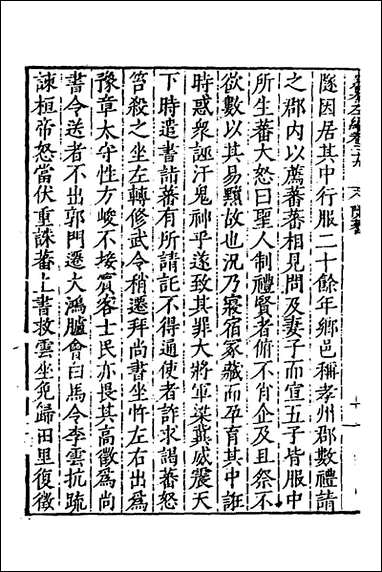 隧因居其中行服二十餘年鄉邑稱孝州郡數禮請
之郡内以薦蕃蕃相見問及妻子而宣五子皆服中
所生蕃大怒曰聖人制禮賢者俯不肖企及且祭不
欲數以其易黷故也況乃寢宿冢藏而孕育其中誑
時惑衆誣汙鬼神乎遂致其罪大將軍梁冀威震天
下時遣書詣蕃有所請託不得通使者詐求謁蕃怒
笞殺之坐左轉修武令稍遷拜尚書坐忤左右出為
豫章太守性方峻不接賓客士民亦畏其高徵為尚
書令送者不出郭門遷大鴻臚會白馬令李雲抗疏
諫桓帝怒當伏重誅蕃上書救雲坐免歸田里復徵